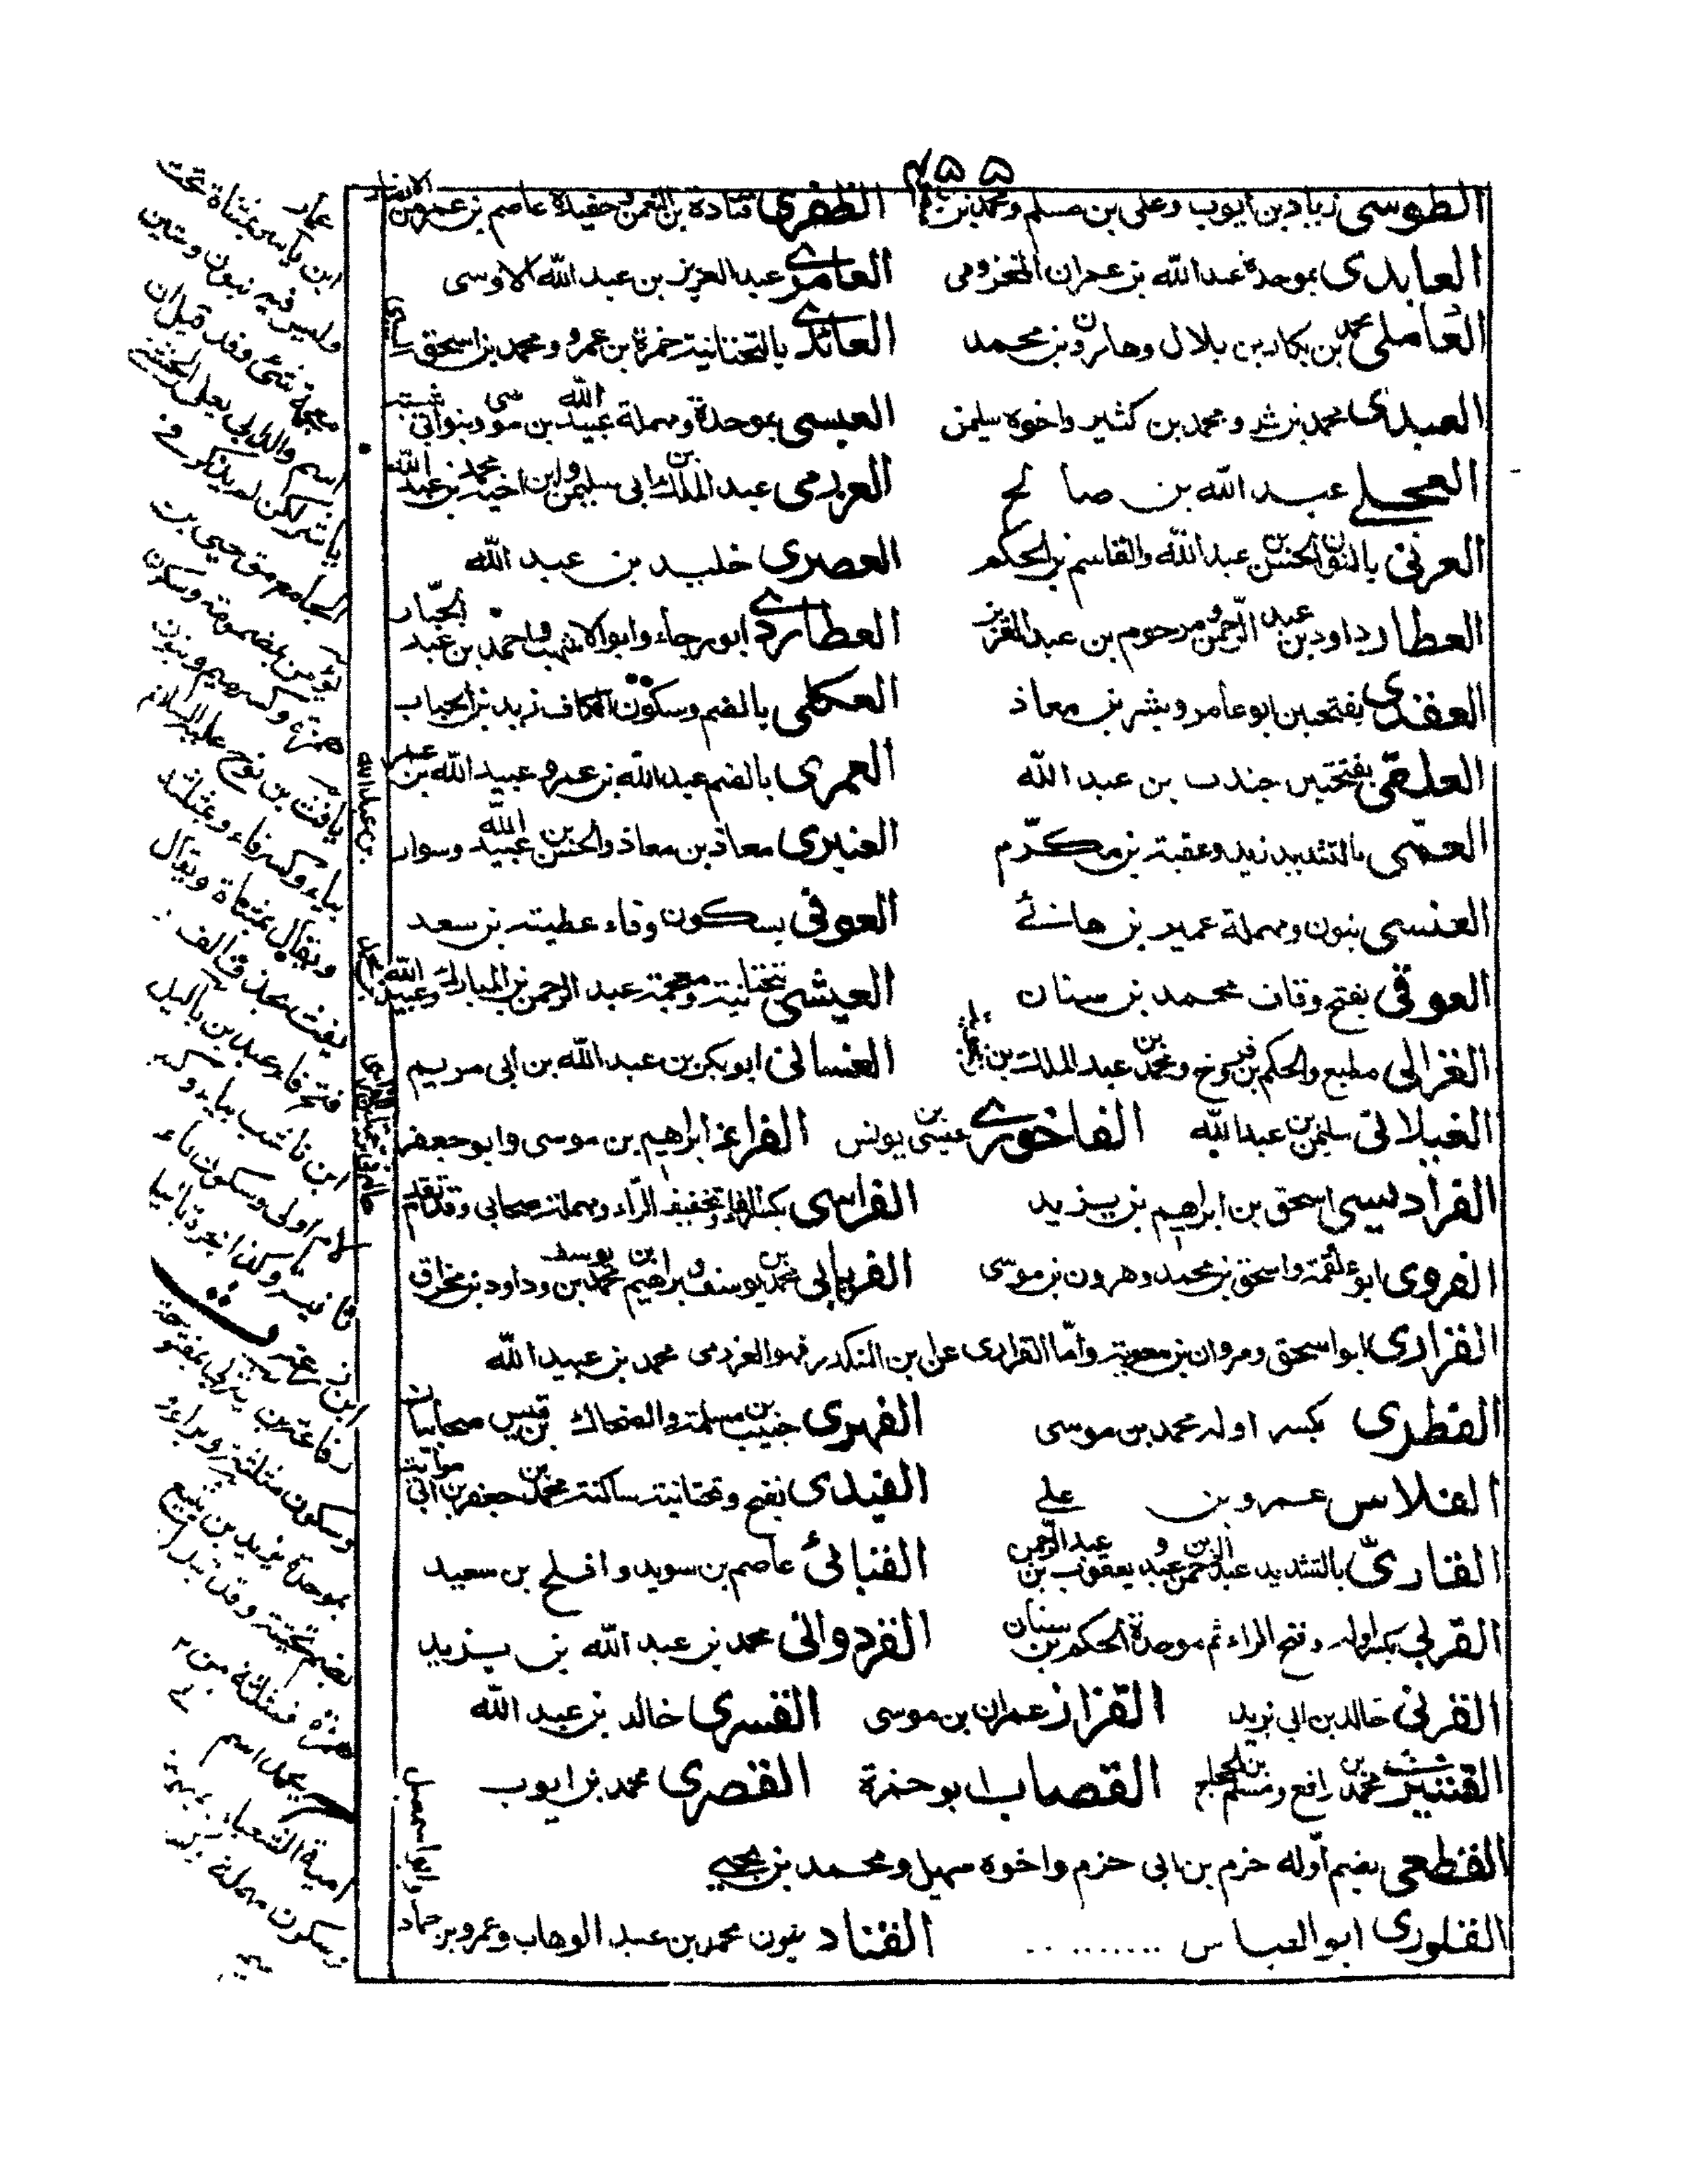 ۴۵۵
الطوسى زياد بن ايوب وعلى بن مسلم ومحمد بن الظفرى قتادة بن النعمن وحفيده عاصم بن عمرو بن الانصار
العابدى بموحدة عبد الله بن عمران المخزومى العامرى عبد العزيز بن عبد الله الاوسى
العاملى محمد بن بكار بن بلال وهارون بن محمد العائذى بالتحتانية حمزة بن عمرو ومحمد بن اسحق
العبدى محمد بن بشر ومحمد بن كثير واخوه سليمن العبسى بموحدة ومهملة عبيد الله بن موسى وبنو ابى شيبة
العجلى عبد الله بن صالح العرزمى عبد الملك بن ابى سليمن وابن اخيه محمد بن عبيد الله
العرنى بالنون الحسن بن عبد الله والقاسم بن الحكم العصرى خليد بن عبد الله
العطار داود بن عبد الرحمن ومرحوم بن عبد العزيز العطاردى ابو رجاء وابو الاشهب واحمد بن عبد الجبار
العقدى بفتحتين ابو عامر وبشر بن معاذ العكلى بالضم وسكون الكاف زيد بن الحباب
العلقى بفتحتين جندب بن عبد الله العمرى بالضم عبد الله بن عمر وعبيد الله بن عمر
العمى بالتشديد زيد وعقبة بن مكرّم العنبرى معاذ بن معاذ والحسن بن عبيد الله وسوار بن عبد الله
العنسى بنون ومهملة عمير بن هانئ العوفى بسكون وفاء عطية بن سعد
العوقى بفتح وقاف محمد بن سنان العيشى بتحتانية ومعجمة عبد الرحمن بن المبارك وعبيد الله بن محمد
الغزالى مطيع والحكم بن فروخ ومحمد بن عبد الملك بن الغسانى ابو بكر بن عبد الله بن ابى مريم
الغيلانى سليمن بن عبد الله الفاخورى عيسى بن يونس الفراء ابراهيم بن موسى وابو جعفر
الفراديسى اسحق بن ابراهيم بن يزيد الفراسى بكسر الفاء وتخفيف الراء ومهملة صحابى وقد تقدم
الفروى ابو علقمة واسحق بن محمد وهرون بن موسى الفريابى محمد بن يوسف وابراهيم بن محمد بن يوسف وداود بن مخراق
الفزارى ابو اسحق ومروان بن معوية واما الفزارى عن ابن المنكدر فهو العرزمى محمد بن عبيد الله
الفطرى بكسر اوله محمد بن موسى الفهرى حبيب بن مسلمة والضحاك بن قيس صحابيان
الفلاس عمرو بن على الفيدى بفتح وتحتانية ساكنة محمد بن جعفر بن ابى مواتية
القارىّ بالتشديد عبد الرحمن بن عبد ويعقوب بن عبد الرحمن القبائى عاصم بن سويد وافلح بن سعيد
القربى بكسر اوله وفتح الراء ثم موحدة الحكم بن سنان القردوانى محمد بن عبد الله بن يزيد
القرنى خالد بن ابى يزيد القزاز عمران بن موسى القسرى خالد بن عبد الله
القشيرى محمد بن رافع ومسلم بن الحجاج القصاب ابو حمزة القصرى محمد بن ايوب
القطعى بضم أوله حزم بن ابى حزم واخوه سهيل ومحمد بن يحيى
القلورى ابو العباس .......... القناد بنون محمد بن عبد الوهاب وعمرو بن حماد وابو اسمعيل
عمار
ابن ياسر بمثناة تحت
وليس فيه بنون وشين
معجمة شئ وقد قيل ان
اسم والد ابى يعلى الخشنى
ياشر لكن لم يذكر فى
الجامع
همزة وكسر ميم وبنون
يافث بن نوح عليه السلام
بياء وكسر فاء وبمثلثة
ويقال بمثناة ويقال
يفث بحذف الف
لام اولى وسكون ياء
وسكون مثلثة وبراء
بموحدة يزيد بن يثيع
بضم تحتية وقد تبدل
همزة فمثلثة من
يحمد اسم
وسكون مهملة